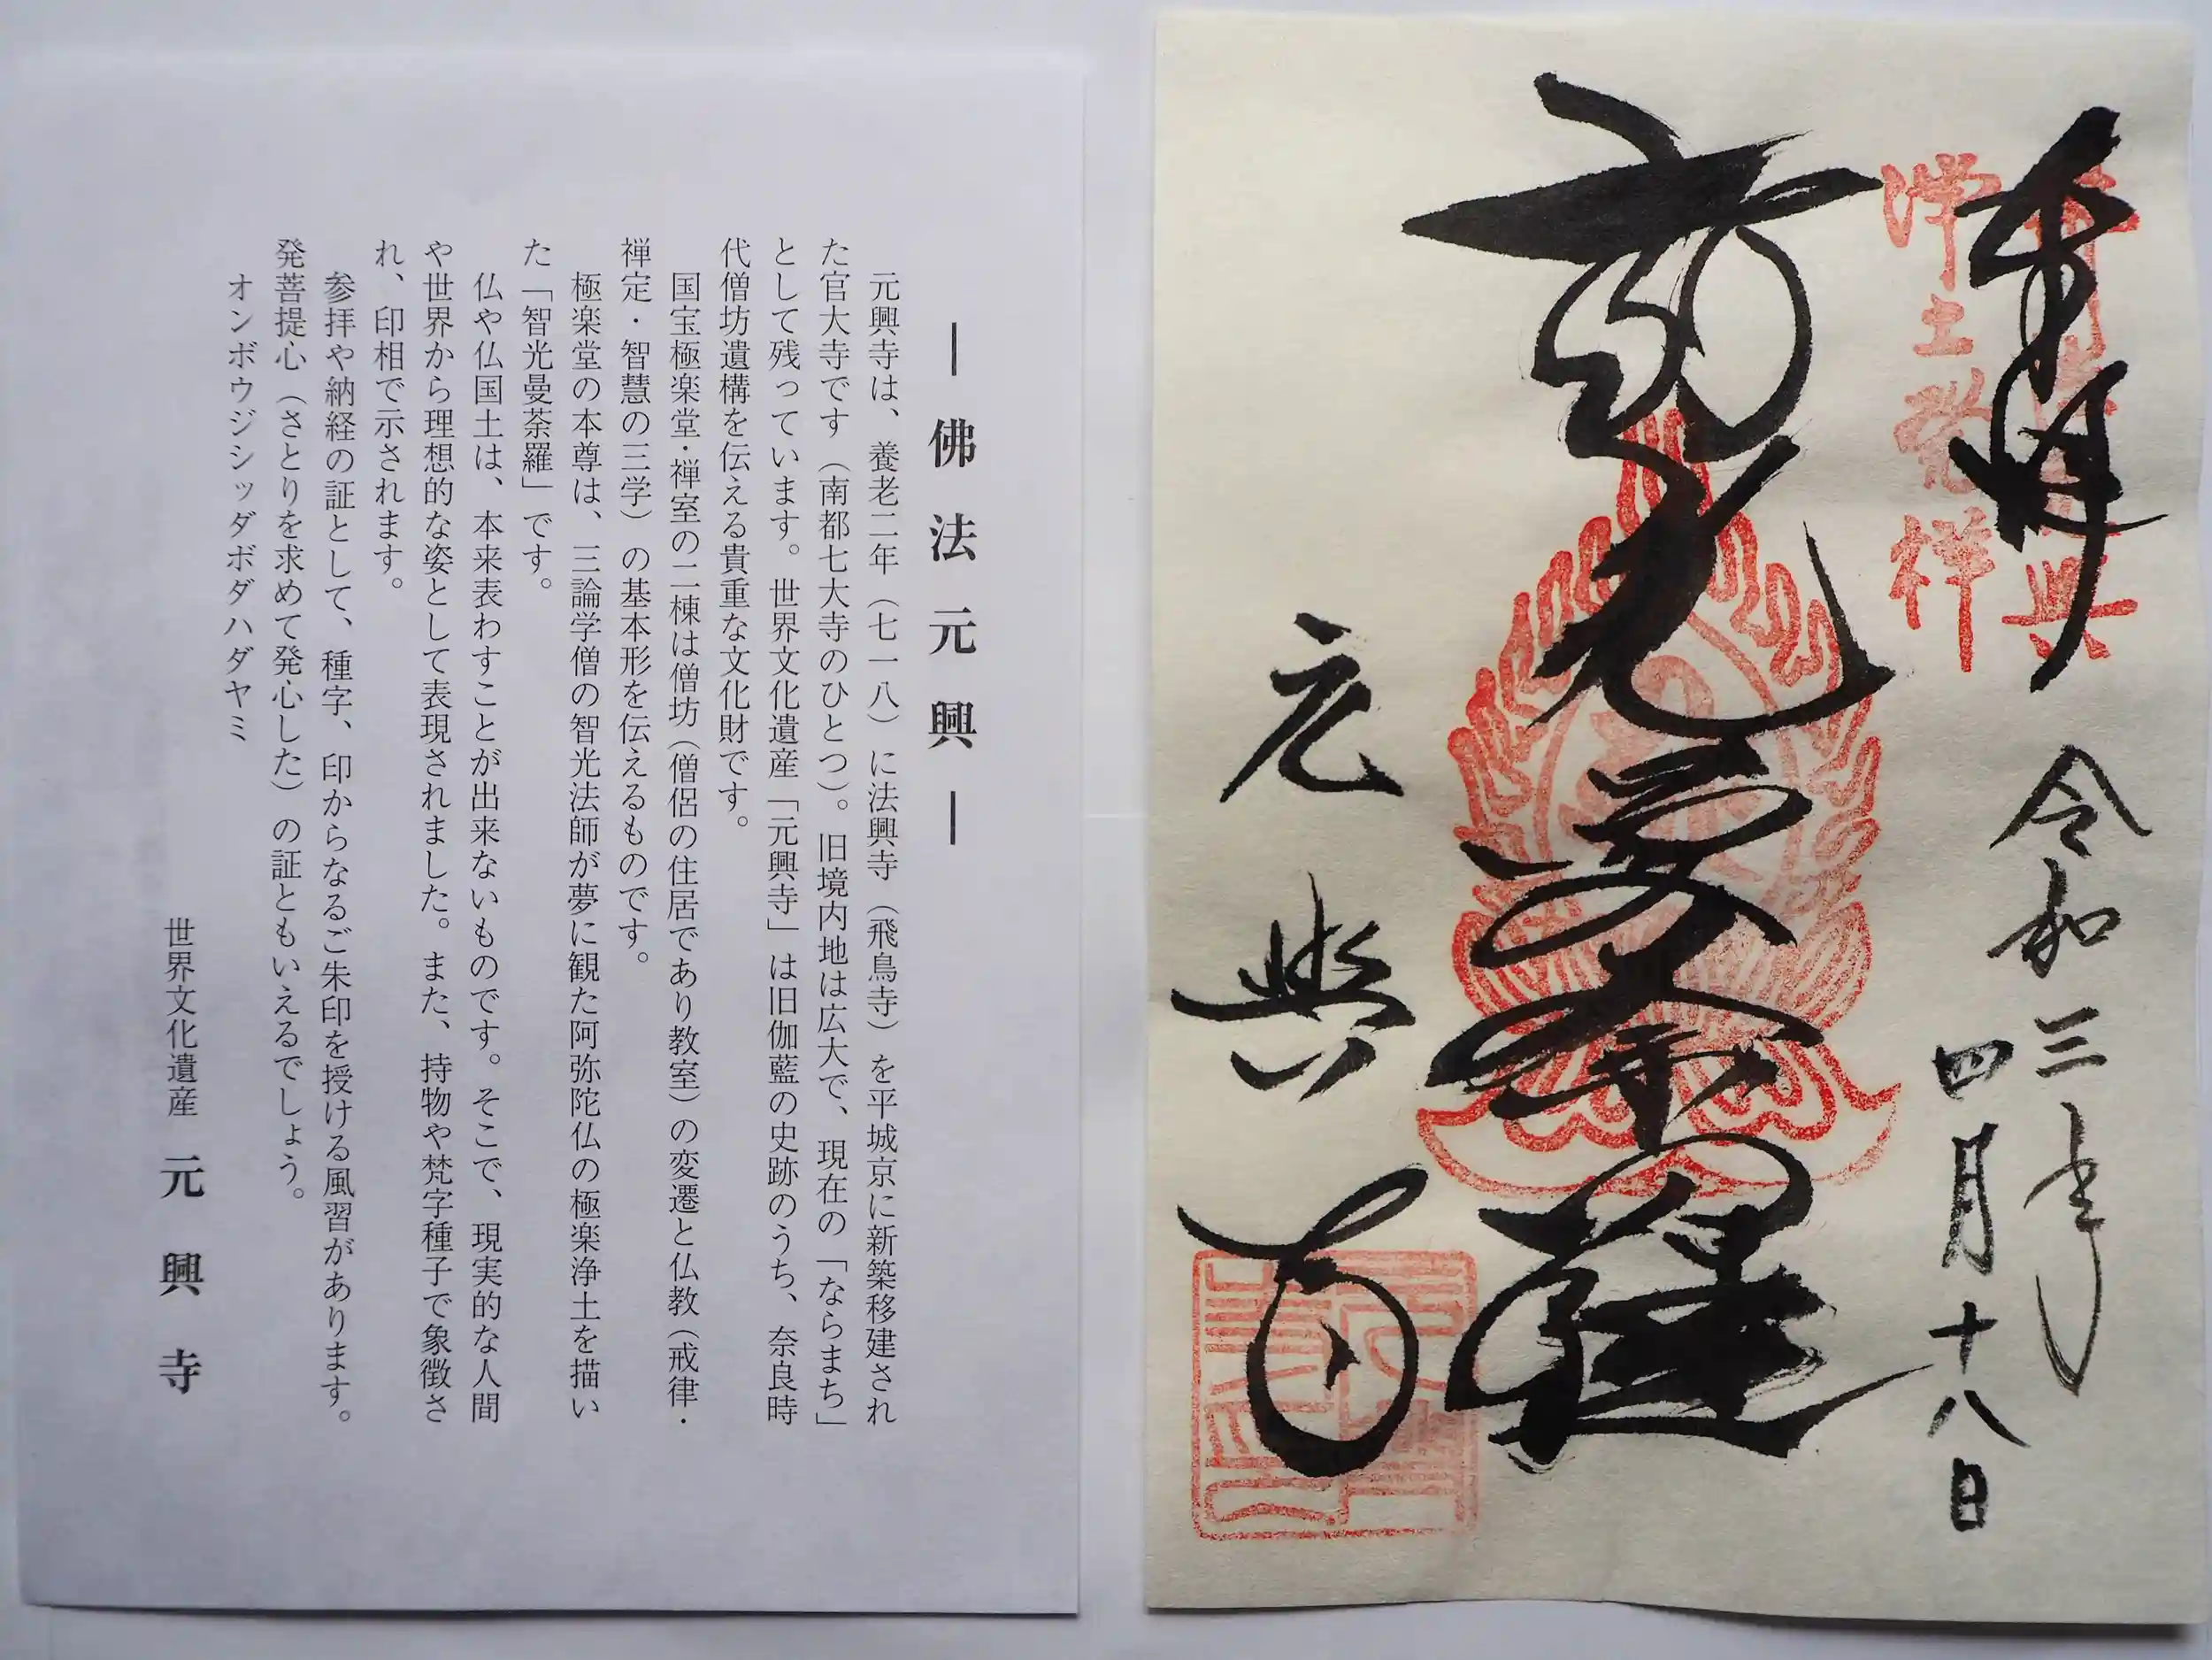 ―佛法元興―
元興寺は、養老二年（七一八）に法興寺（飛鳥寺）を平城京に新築移建され
た官大寺です（南都七大寺のひとつ）。旧境内地は広大で、現在の「ならまち」
として残っています。世界文化遺産「元興寺」は旧伽藍の史跡のうち、奈良時
代僧坊遺構を伝える貴重な文化財です。
国宝極楽堂・禅室の二棟は僧坊（僧侶の住居であり教室）の変遷と仏教（戒律・
禅定・智慧の三学）の基本形を伝えるものです。
極楽堂の本尊は、三論学僧の智光法師が夢に観た阿弥陀仏の極楽浄土を描い
た「智光曼荼羅」です。
仏や仏国土は、本来表わすことが出来ないものです。そこで、現実的な人間
や世界から理想的な姿として表現されました。また、持物や梵字種子で象徴さ
れ、印相で示されます。
参拝や納経の証として、種字、印からなるご朱印を授ける風習があります。
発菩提心（さとりを求めて発心した）の証ともいえるでしょう。
オンボウジシッダボダハダヤミ
世界文化遺産 元興寺
奉拝 令和三年
四月十八日
浄土発祥
智光曼荼羅
元興寺